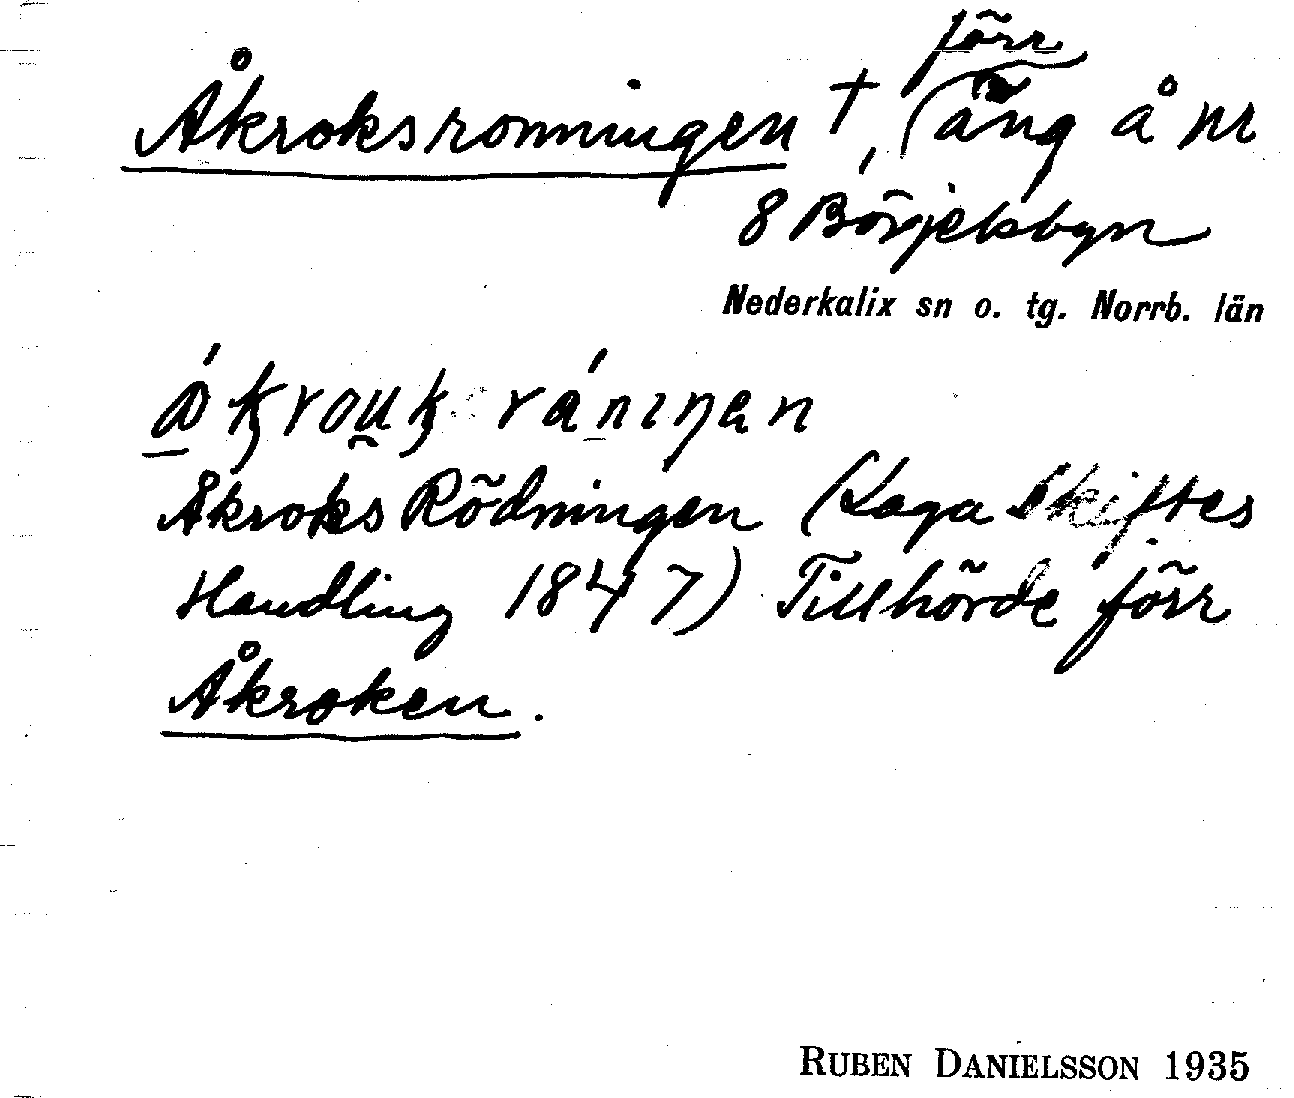 förr
Åkroksronningen †, (äng å nr
8 Börjelsbyn
Nederkalix sn o. tg. Norrb. län
Åkroks Rödningen (Laga Skiftes
Handling 1847) Tillhörde förr
Åkroken.
RUBEN DANIELSSON 1935